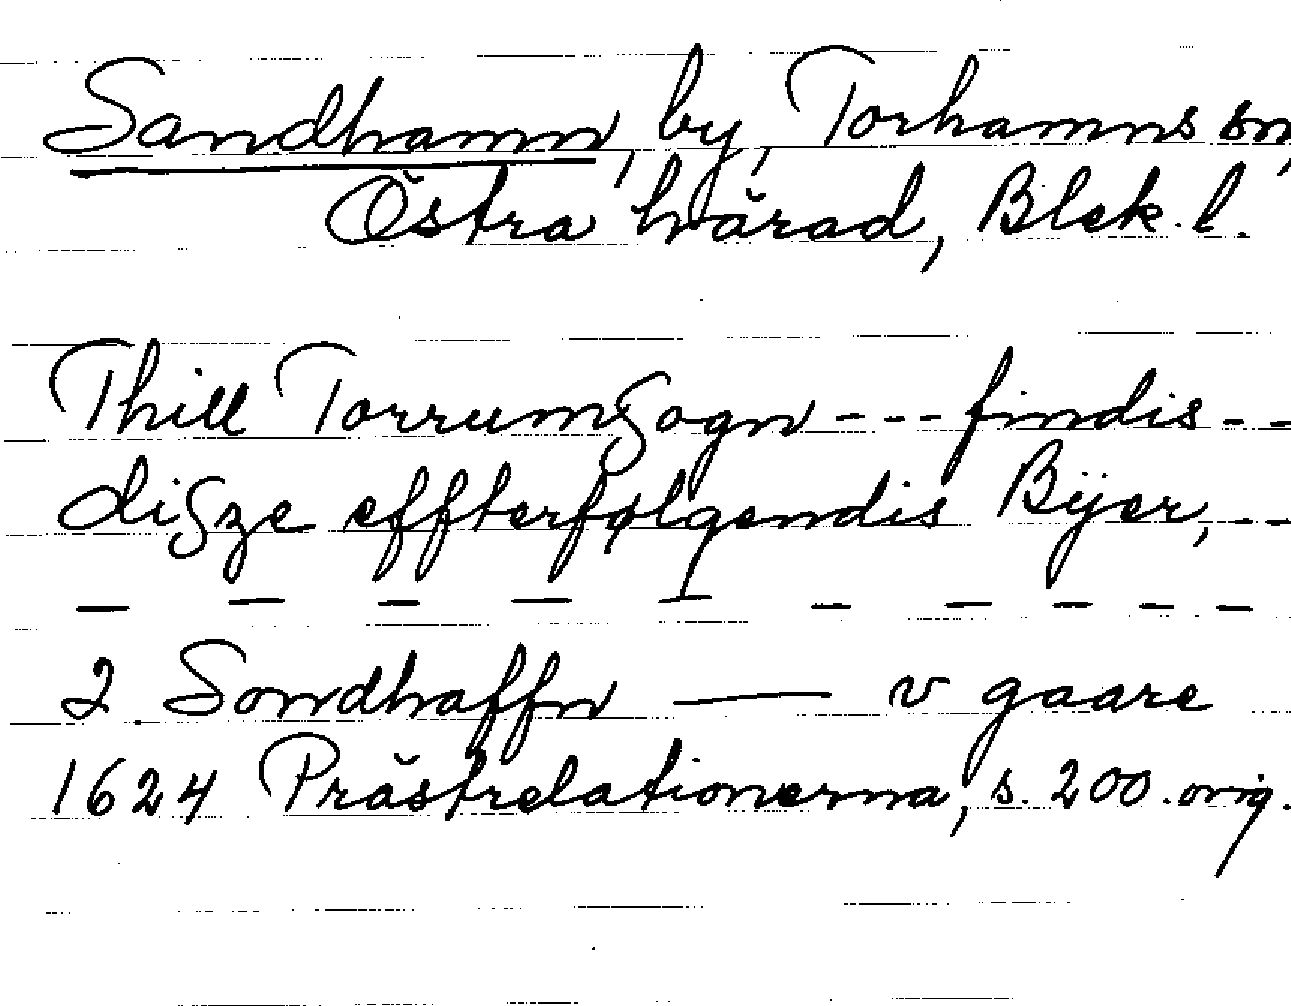 Sandhamn, by, Torhamns sn,
Östra härad, Blek. l.
Thill Torrumßogn - - - findis - -
dißze effterfølgendis Bÿer, - -
— — — — — — — — — —
2. Sondhaffn — v gaare
1624 Prästrelationerna, s. 200. orig.